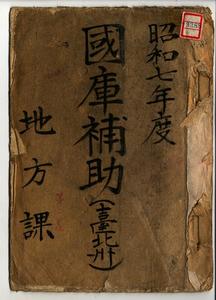 昭和七年度
國庫補助(臺北州)
地方課